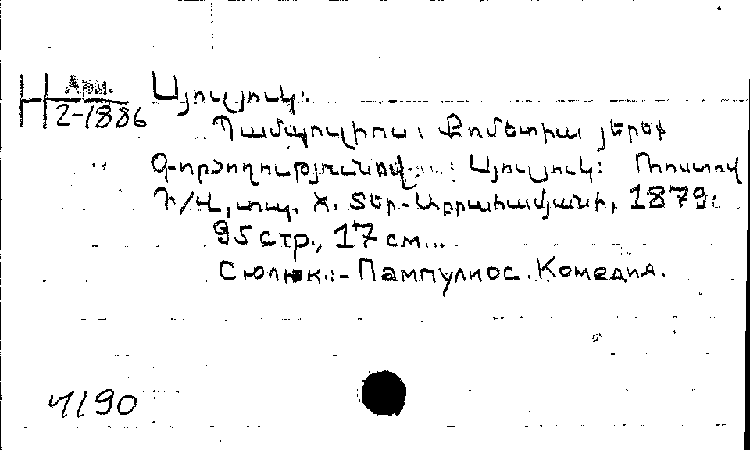 Арм.
Н 2-1886
Սյուլյուկ։
Պամպուլիոս։ Քոմետիա յերեք
Գործողությունով... Սյուլյուկ։ Ռոստով
Դ/Ն, տպ. Հ. Տեր-Աբրահամյանի, 1879։
95 стр., 17 см...
Сюлюк.- Пампулиос. Комедия.
4190